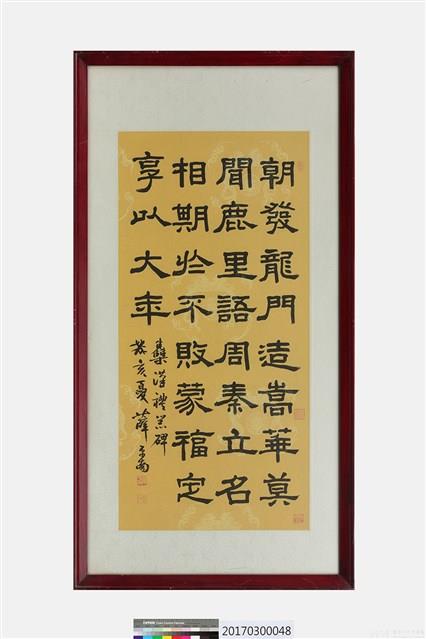 朝發龍門造嵩華莫
聞鹿里語周秦立名
相期於不敗蒙福定
享以大年
集漢禮器碑
癸亥夏薛平南
20170300048